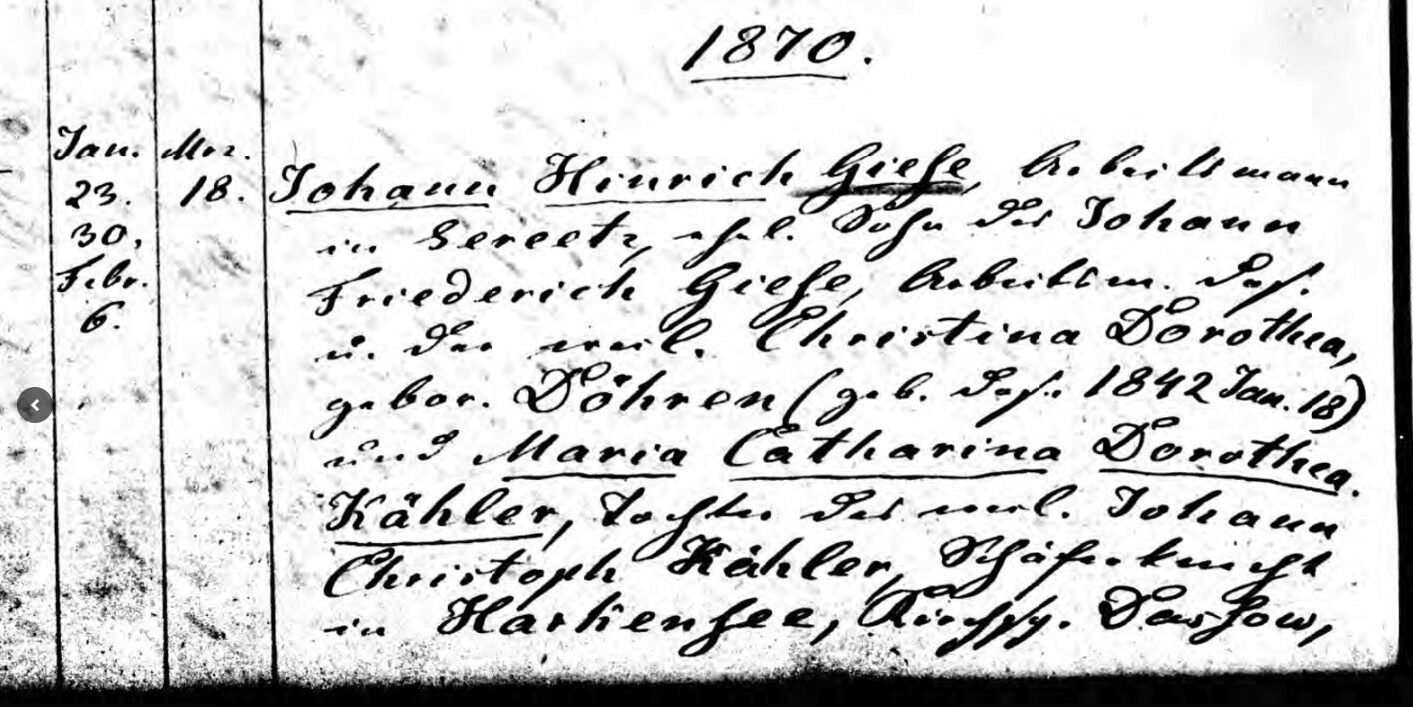 1870.
Jan. Mrz.
23. 18.
30.
Febr.
6.
Johann Hinrich Giese, Arbeitsmann
in Sereetz, ehel. Sohn des Johann
Friederich Giese, Arbeitsm. das.
u. der weil. Christina Dorothea,
gebor. Döhren (geb. das. 1842 Jan. 18)
und Maria Catharina Dorothea
Kähler, Tochter des weil. Johann
Christoph Kähler, Schäferknecht
in Harkensee, Kirchsp. Dassow,